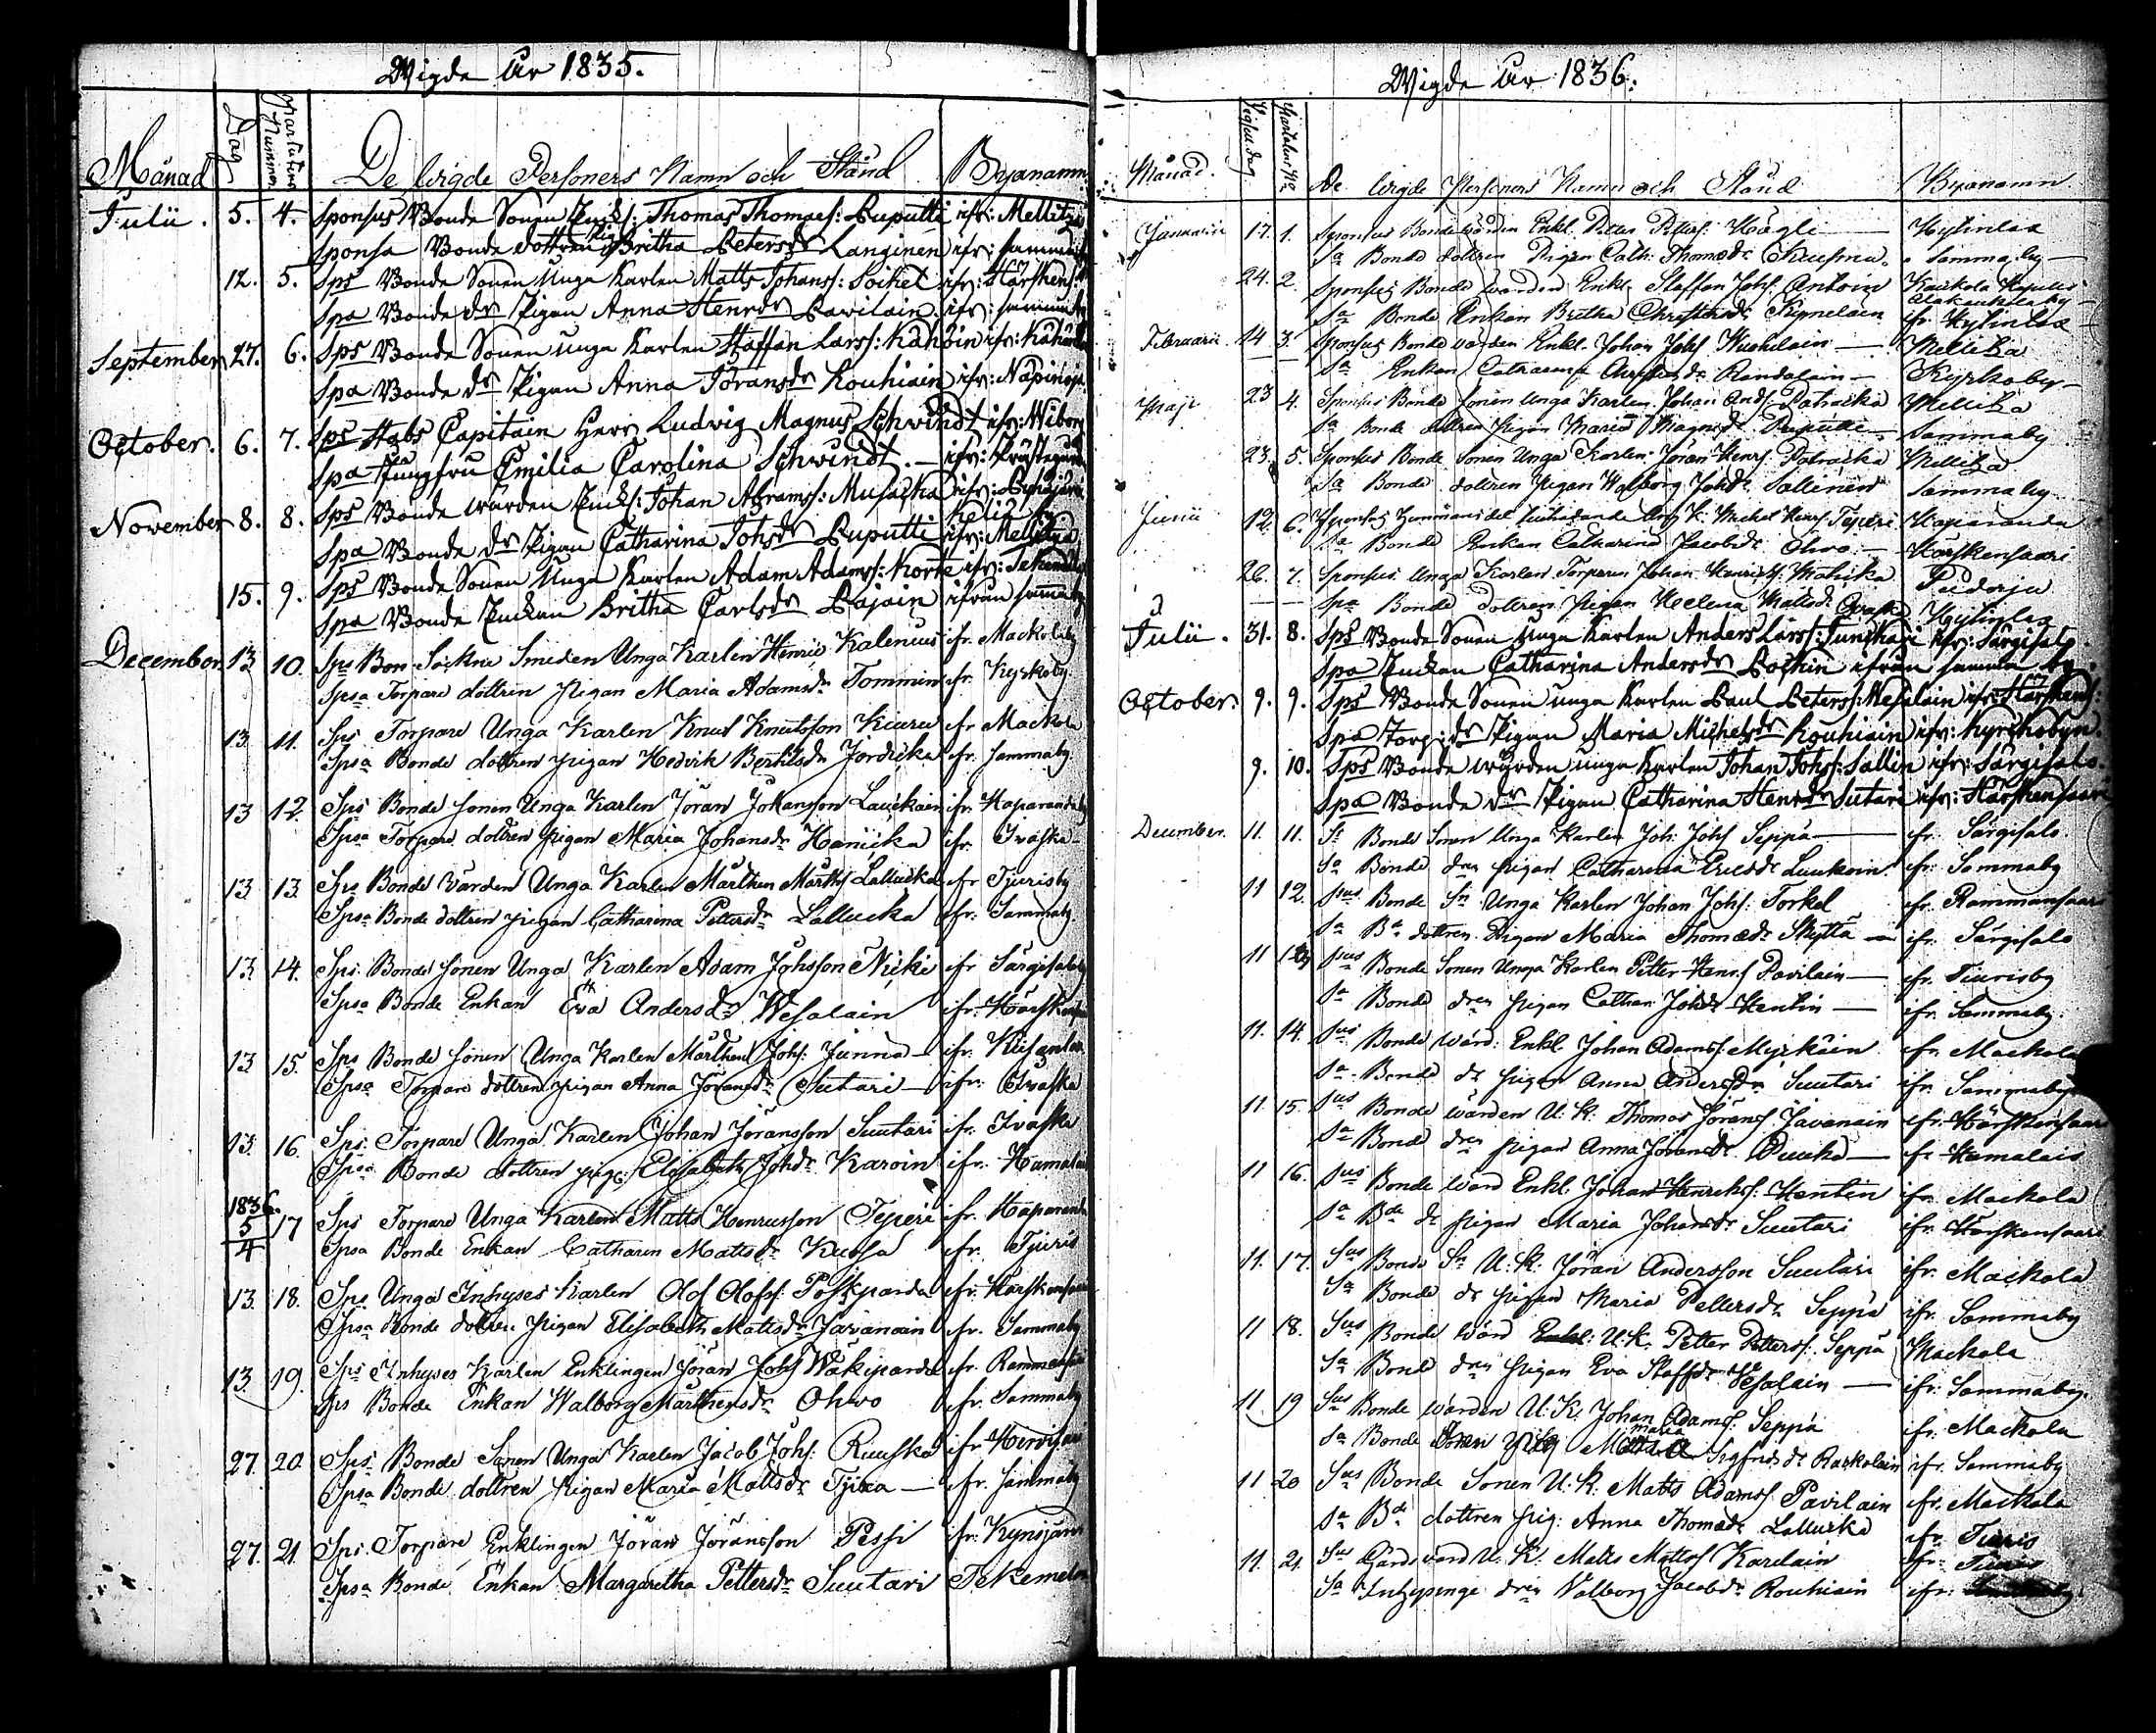 Wigde År 1835.
Månad Dag Nummer De wigde Personers Namn och Stånd Byanamn
Julii. 5. 4. Sponsus Bonde Sonen Enkl: Thomas Thomass: Puputti ifr: Mellitzä
Sponsa Bonde dottren Pig: Britha Petersdr Langinen ifr: samma
12. 5. Sps Bonde Sonen Unga Karlen Matts Johanss: Soikel ifr: Härskens:
Spa Bonde dr Pigan Anna Henrdr Pavilain ifr: samma
September 27. 6. Sps Bonde Sonen unga Karlen Staffan Larss: Kähöin ifr:
Spa Bonde dr Pigan Anna Jöransdr Kouhiain ifr: Näpinoja
October. 6. 7. Sps Stabs Capitain Herr Ludvig Magnus Schwindt ifr: Wiborg
Spa Jungfru Emilia Carolina Schwindt. ifr:
November 8. 8. Sps Bonde wärden Enkl: Johan Abramss: Musacka ifr:
Spa Bonde dr Pigan Catharina Johsdr Puputti ifr: Mellitzä
15. 9. Sps Bonde Sonen Unga Karlen Adam Adamss: Korte ifr:
Spa Bonde Enckan Britha Carlsdr Pajain ifrån samma
December 13 10. Sps Smeden Unga Karlen Henric Kalenius ifr. Mackolaby
Spsa Torpare dottren pigan Maria Adamsdr Tommin fr. Kyrkoby
13. 11. Sps Torpare Unga Karlen Knut Knutsson Kiaru ifr Mackola
Spsa Bonde dottren pigan Hedvik Bertilsdr Jordicka ifr. sammaby
13 12. Sps Bonde sonen Unga Karlen Jöran Johansson Lauckain ifr. Haparandaby
Spsa Torpare dottren pigan Maria Johansdr Hanicka ifr. Ivaska
13 13. Sps Bonde värden Unga Karlen Mårthen Mårths Lallucka ifr Tjurisby
Spsa Bonde dottren pigan Catharina Pettersdr Lallucka ifr. Sammaby
13 14. Sps Bonde sonen Unga Karlen Adam Johsson Nicki ifr Särgisaloby
Spsa Bonde Enkan Eva Andersdr Wesalain ifr. Härskensaari
13 15. Sps Bonde sonen Unga Karlen Mårthen Johs: Junna ifr.
Spsa Torpare dottren pigan Anna Jöransdr Suutari ifr. Ivaska
13. 16. Sps Torpare Unga Karlen Johan Jöransson Suutari ifr. Ivaska
Spsa Bonde dottren pig: Elisabeth Johdr Karoin ifr.
1836.
5/4 17 Sps Torpare Unga Karlen Matts Henricsson Teperi ifr. Haparanda
Spsa Bonde Enkan Catharin Mattsdr Kuosa ifr. Tjuris
13. 18. Sps Unga Inhyses Karlen Olof Olofss: Poskiparda ifr. Härskensaari
Spsa Bonde dottren Pigan Elisabeth Mattsdr Javanain ifr. Sammaby
13. 19. Sps Inhyses Karlen Enklingen Jöran Johs Wäkiparda ifr. Rammansaari
Sps Bonde Enkan Walborg Mårthensdr Ohvo fr. Sammaby
27. 20. Sps Bonde Sonen Unga Karlen Jacob Johs: Ruuska ifr Hirvisaari
Spsa Bonde dottren Pigan Maria Mattsdr Tjika ifr. Sammaby
27. 21. Sps Torpare Enklingen Jöran Jöransson Pessi ifr. Kynsjärvi
Spsa Bonde Enkan Margaretha Pettersdr Suutari Tekemelen
Wigde År 1836.
Månad. Vigsel dag De wigde Personers Namn och Stånd Byanamn
Januarii 17. 1. Sponsus Bonde wärden Enkl. Petter Petters: Hägli Kylinlax
Sa Bonde dottren Pigan Cath: Thomædr Sammaby
24. 2. Sponsus Bonde wärden Enkl. Staffan Johs: Antoin Kaukola
Sa Bonde Enkan Britha Christersdr Kynelain fr. Kylinlax
Februarii. 14 3. Sponsus Bonde wärden Enkl. Johan Johs Mellizä
Sa Enkan Catharina Christersdr Randalain Kyrkoby
Maji 23 4. Sponsus Bonde sonen unga Karlen Johan Ands: Patracka Mellizä
Sa Bonde dottren Pigan Maria Magnsdr Puputti Sammaby
23. 5. Sponsus Bonde sonen Unga Karlen Jöran Henrs: Patracka Mellizä
Sa Bonde dottren pigan Walborg Johdr Sallinen Sammaby
Junii 12. 6. Sponsus Michel Henrs: Teperi Haparanda
Sa Bonde Enkan Catharina Jacobsdr Ohvo Härskensaari
26. 7. Sponsus Unga Karlen Torparen Johan Henricss: Pedorja
Spa Bonde Dottren pigan Helena Mattsdr Kylinlax
Julii. 31. 8. Sps Bonde Sonen Unga Karlen Anders Larss: Junikari ifr. Särgisalo.
Spa Enckan Catharina Andersdr Pöckin ifrån samma by.
October. 9. 9. Sps Bonde Sonen unga Karlen Paul Peterss: Wesalain ifr: Härskens:
Spa Torp: dr Pigan Maria Michelsdr Kouhiain ifr: Kyrckobyn.
9. 10. Sps Bonde wärden unga Karlen Johan Johs: Sallin ifr: Särgisalo.
Spa Bonde dr Pigan Catharina Henrdr Sutari ifr: Härskensaari
December. 11. 11. Ss Bonde Sonen Unga Karlen Joh: Johs Seppä ifr. Särgisalo.
Sa Bonde dren pigan Catharina Ericsdr Luukoin. ifr. Sammaby
11 12. Sus Bonde Sn Unga Karlen Johan Johs: Torkel ifr. Rammansaari
Sa Bde dottren Pigan Maria Thomædr Skyttä ifr. Särgisalo
11 13 Sus Bonde Sonen Unga Karlen Petter Henrs Pavilain ifr. Tiurisby
Sa Bonde dren pigan Cathar: Johdr Hentin ifr. Sammaby.
11. 14. Sus Bonde wärd: Enkl. Johan Adams: Myrkäin ifr. Mackola
Sa Bonde dr pigan Anna Andersdr Suutari ifr. Sammaby
11. 15. Sus Bonde wärden U. K. Thomas Jörans Javanain ifr. Härskensaari
Sa Bonde dren pigan Anna Jöransdr Puucka fr. Hämaläis
11 16. Sus Bonde wärd Enkl. Johan Henrikss: Hentin ifr. Mackola
Sa Bde dr pigan Maria Johansdr Suutari ifr. Härskensaari
11. 17. Sus Bonde Sn U. K. Jöran Andersson Suutari ifr. Mackola
Sa Bonde dr pigan Maria Pettersdr Seppä ifr. Sammaby
11 18. Sus Bonde wärd Enkl: U. K. Petter Petters: Seppä Mackola
Sa Bonde dren pigan Eva Staffsdr Wesalain ifr. Sammaby.
11. 19 Sus Bonde wärden U. K. Johan Adams: Seppä ifr. Mackola
Sa Bonde dotren pig Maria Sigfridsdr Raskolain ifr. Sammaby
11 20 Sus Bonde Sonen U. K. Matts Adams: Pavilain ifr. Mackola
Sa Bde dottren pig: Anna Thomædr Lallucka ifr. Tiuris
11. 21. Sus Gårdsvärd U. K. Matts Matts Karilain ifr. Tiuris
Sa Inhysinge dren Valborg Jacobdr Rouhiain ifr.